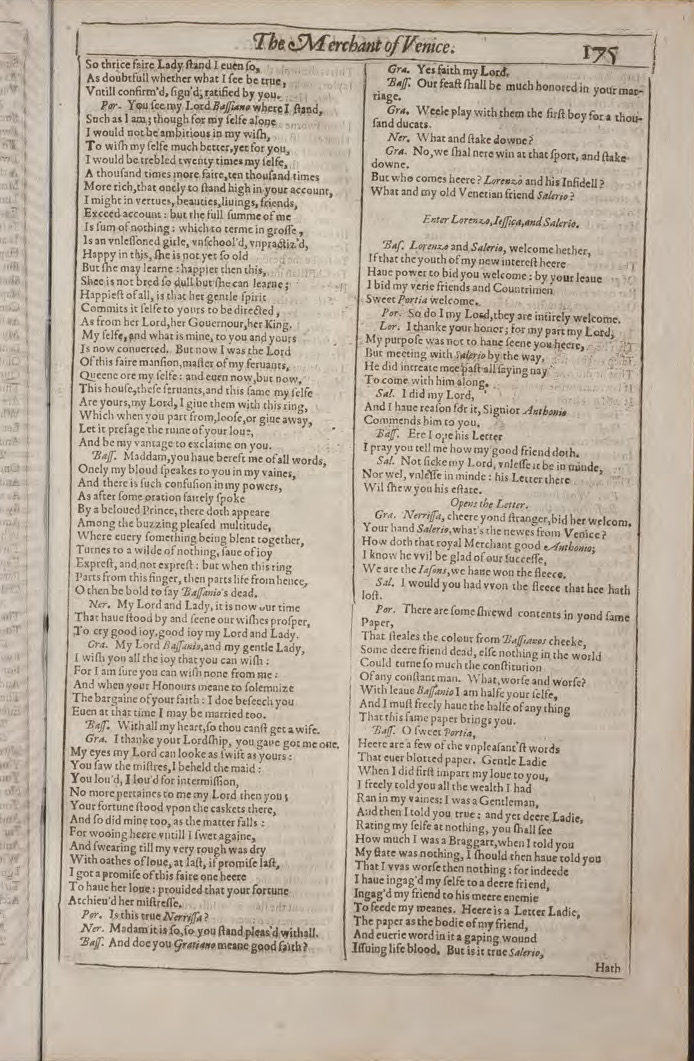 The Merchant of Venice.
175
So thrice faire Lady ſtand I euen ſo,
As doubtfull whether what I ſee be true,
Vntill confirm'd, ſign'd, ratified by you.
Por. You ſee my Lord Baſſiano where I ſtand,
Such as I am; though for my ſelfe alone
I would not be ambitious in my wiſh,
To wiſh my ſelfe much better, yet for you,
I would be trebled twenty times my ſelfe,
A thouſand times more faire, ten thouſand times
More rich, that onely to ſtand high in your account,
I might in vertues, beauties, liuings, friends,
Exceed account : but the full ſumme of me
Is ſum of nothing : which to terme in groſſe,
Is an vnleſſoned girle, vnſchool'd, vnpractiz'd,
Happy in this, ſhe is not yet ſo old
But ſhe may learne : happier then this,
Shee is not bred ſo dull but ſhe can learne;
Happieſt of all, is that her gentle ſpirit
Commits it ſelfe to yours to be directed,
As from her Lord, her Gouernour, her King.
My ſelfe, and what is mine, to you and yours
Is now conuerted. But now I was the Lord
Of this faire manſion, maſter of my ſeruants,
Queene ore my ſelfe : and euen now, but now,
This houſe, theſe ſeruants, and this ſame my ſelfe
Are yours, my Lord, I giue them with this ring,
Which when you part from, looſe, or giue away,
Let it preſage the ruine of your loue,
And be my vantage to exclaime on you.
Baſſ. Maddam, you haue bereft me of all words,
Onely my bloud ſpeakes to you in my vaines,
And there is ſuch confuſion in my powers,
As after ſome oration fairely ſpoke
By a beloued Prince, there doth appeare
Among the buzzing pleaſed multitude,
Where euery ſomething being blent together,
Turnes to a wilde of nothing, ſaue of ioy
Expreſt, and not expreſt : but when this ring
Parts from this finger, then parts life from hence,
O then be bold to ſay Baſſanio's dead.
Ner. My Lord and Lady, it is now our time
That haue ſtood by and ſeene our wiſhes proſper,
To cry good ioy, good ioy my Lord and Lady.
Gra. My Lord Baſſanio, and my gentle Lady,
I wiſh you all the ioy that you can wiſh :
For I am ſure you can wiſh none from me :
And when your Honours meane to ſolemnize
The bargaine of your faith : I doe beſeech you
Euen at that time I may be married too.
Baſſ. With all my heart, ſo thou canſt get a wife.
Gra. I thanke your Lordſhip, you gaue got me one.
My eyes my Lord can looke as ſwift as yours :
You ſaw the miſtres, I beheld the maid :
You lou'd, I lou'd for intermiſſion,
No more pertaines to me my Lord then you;
Your fortune ſtood vpon the caskets there,
And ſo did mine too, as the matter falls :
For wooing heere vntill I ſwet againe,
And ſwearing till my very rough was dry
With oathes of loue, at laſt, if promiſe laſt,
I got a promiſe of this faire one heere
To haue her loue : prouided that your fortune
Atchieu'd her miſtreſſe.
Por. Is this true Nerriſſa?
Ner. Madam it is ſo, ſo you ſtand pleas'd withall.
Baſſ. And doe you Gratiano meane good faith?
Gra. Yes faith my Lord.
Baſſ. Our feaſt ſhall be much honored in your mar-
riage.
Gra. Weele play with them the firſt boy for a thou-
ſand ducats.
Ner. What and ſtake downe?
Gra. No, we ſhal nere win at that ſport, and ſtake
downe.
But who comes heere? Lorenzo and his Infidell?
What and my old Venetian friend Salerio?
Enter Lorenzo, Ieſſica, and Salerio.
Baſ. Lorenzo and Salerio, welcome hether,
If that the youth of my new intereſt heere
Haue power to bid you welcome : by your leaue
I bid my verie friends and Countrimen
Sweet Portia welcome.
Por. So do I my Lord, they are intirely welcome.
Lor. I thanke your honor; for my part my Lord,
My purpoſe was not to haue ſeene you heere,
But meeting with Salerio by the way,
He did intreate mee paſt all ſaying nay
To come with him along.
Sal. I did my Lord,
And I haue reaſon for it, Signior Anthonio
Commends him to you.
Baſſ. Ere I ope his Letter
I pray you tell me how my good friend doth.
Sal. Not ſicke my Lord, vnleſſe it be in minde,
Nor wel, vnleſſe in minde : his Letter there
Wil ſhew you his eſtate.
Opens the Letter.
Gra. Nerriſſa, cheere yond ſtranger, bid her welcom.
Your hand Salerio, what's the newes from Venice?
How doth that royal Merchant good Anthonio;
I know he vvil be glad of our ſucceſſe,
We are the Iaſons, we haue won the fleece.
Sal. I would you had vvon the fleece that hee hath
loſt.
Por. There are ſome ſhrewd contents in yond ſame
Paper,
That ſteales the colour from Baſſianos cheeke,
Some deere friend dead, elſe nothing in the world
Could turne ſo much the conſtitution
Of any conſtant man. What, worſe and worſe?
With leaue Baſſanio I am halfe your ſelfe,
And I muſt freely haue the halfe of any thing
That this ſame paper brings you.
Baſſ. O ſweet Portia,
Heere are a few of the vnpleaſant'ſt words
That euer blotted paper. Gentle Ladie
When I did firſt impart my loue to you,
I freely told you all the wealth I had
Ran in my vaines : I was a Gentleman,
And then I told you true : and yet deere Ladie,
Rating my ſelfe at nothing, you ſhall ſee
How much I was a Braggart, when I told you
My ſtate was nothing, I ſhould then haue told you
That I vvas worſe then nothing : for indeede
I haue ingag'd my ſelfe to a deere friend,
Ingag'd my friend to his meere enemie
To feede my meanes. Heere is a Letter Ladie,
The paper as the bodie of my friend,
And euerie word in it a gaping wound
Iſſuing life blood. But is it true Salerio,
Hath